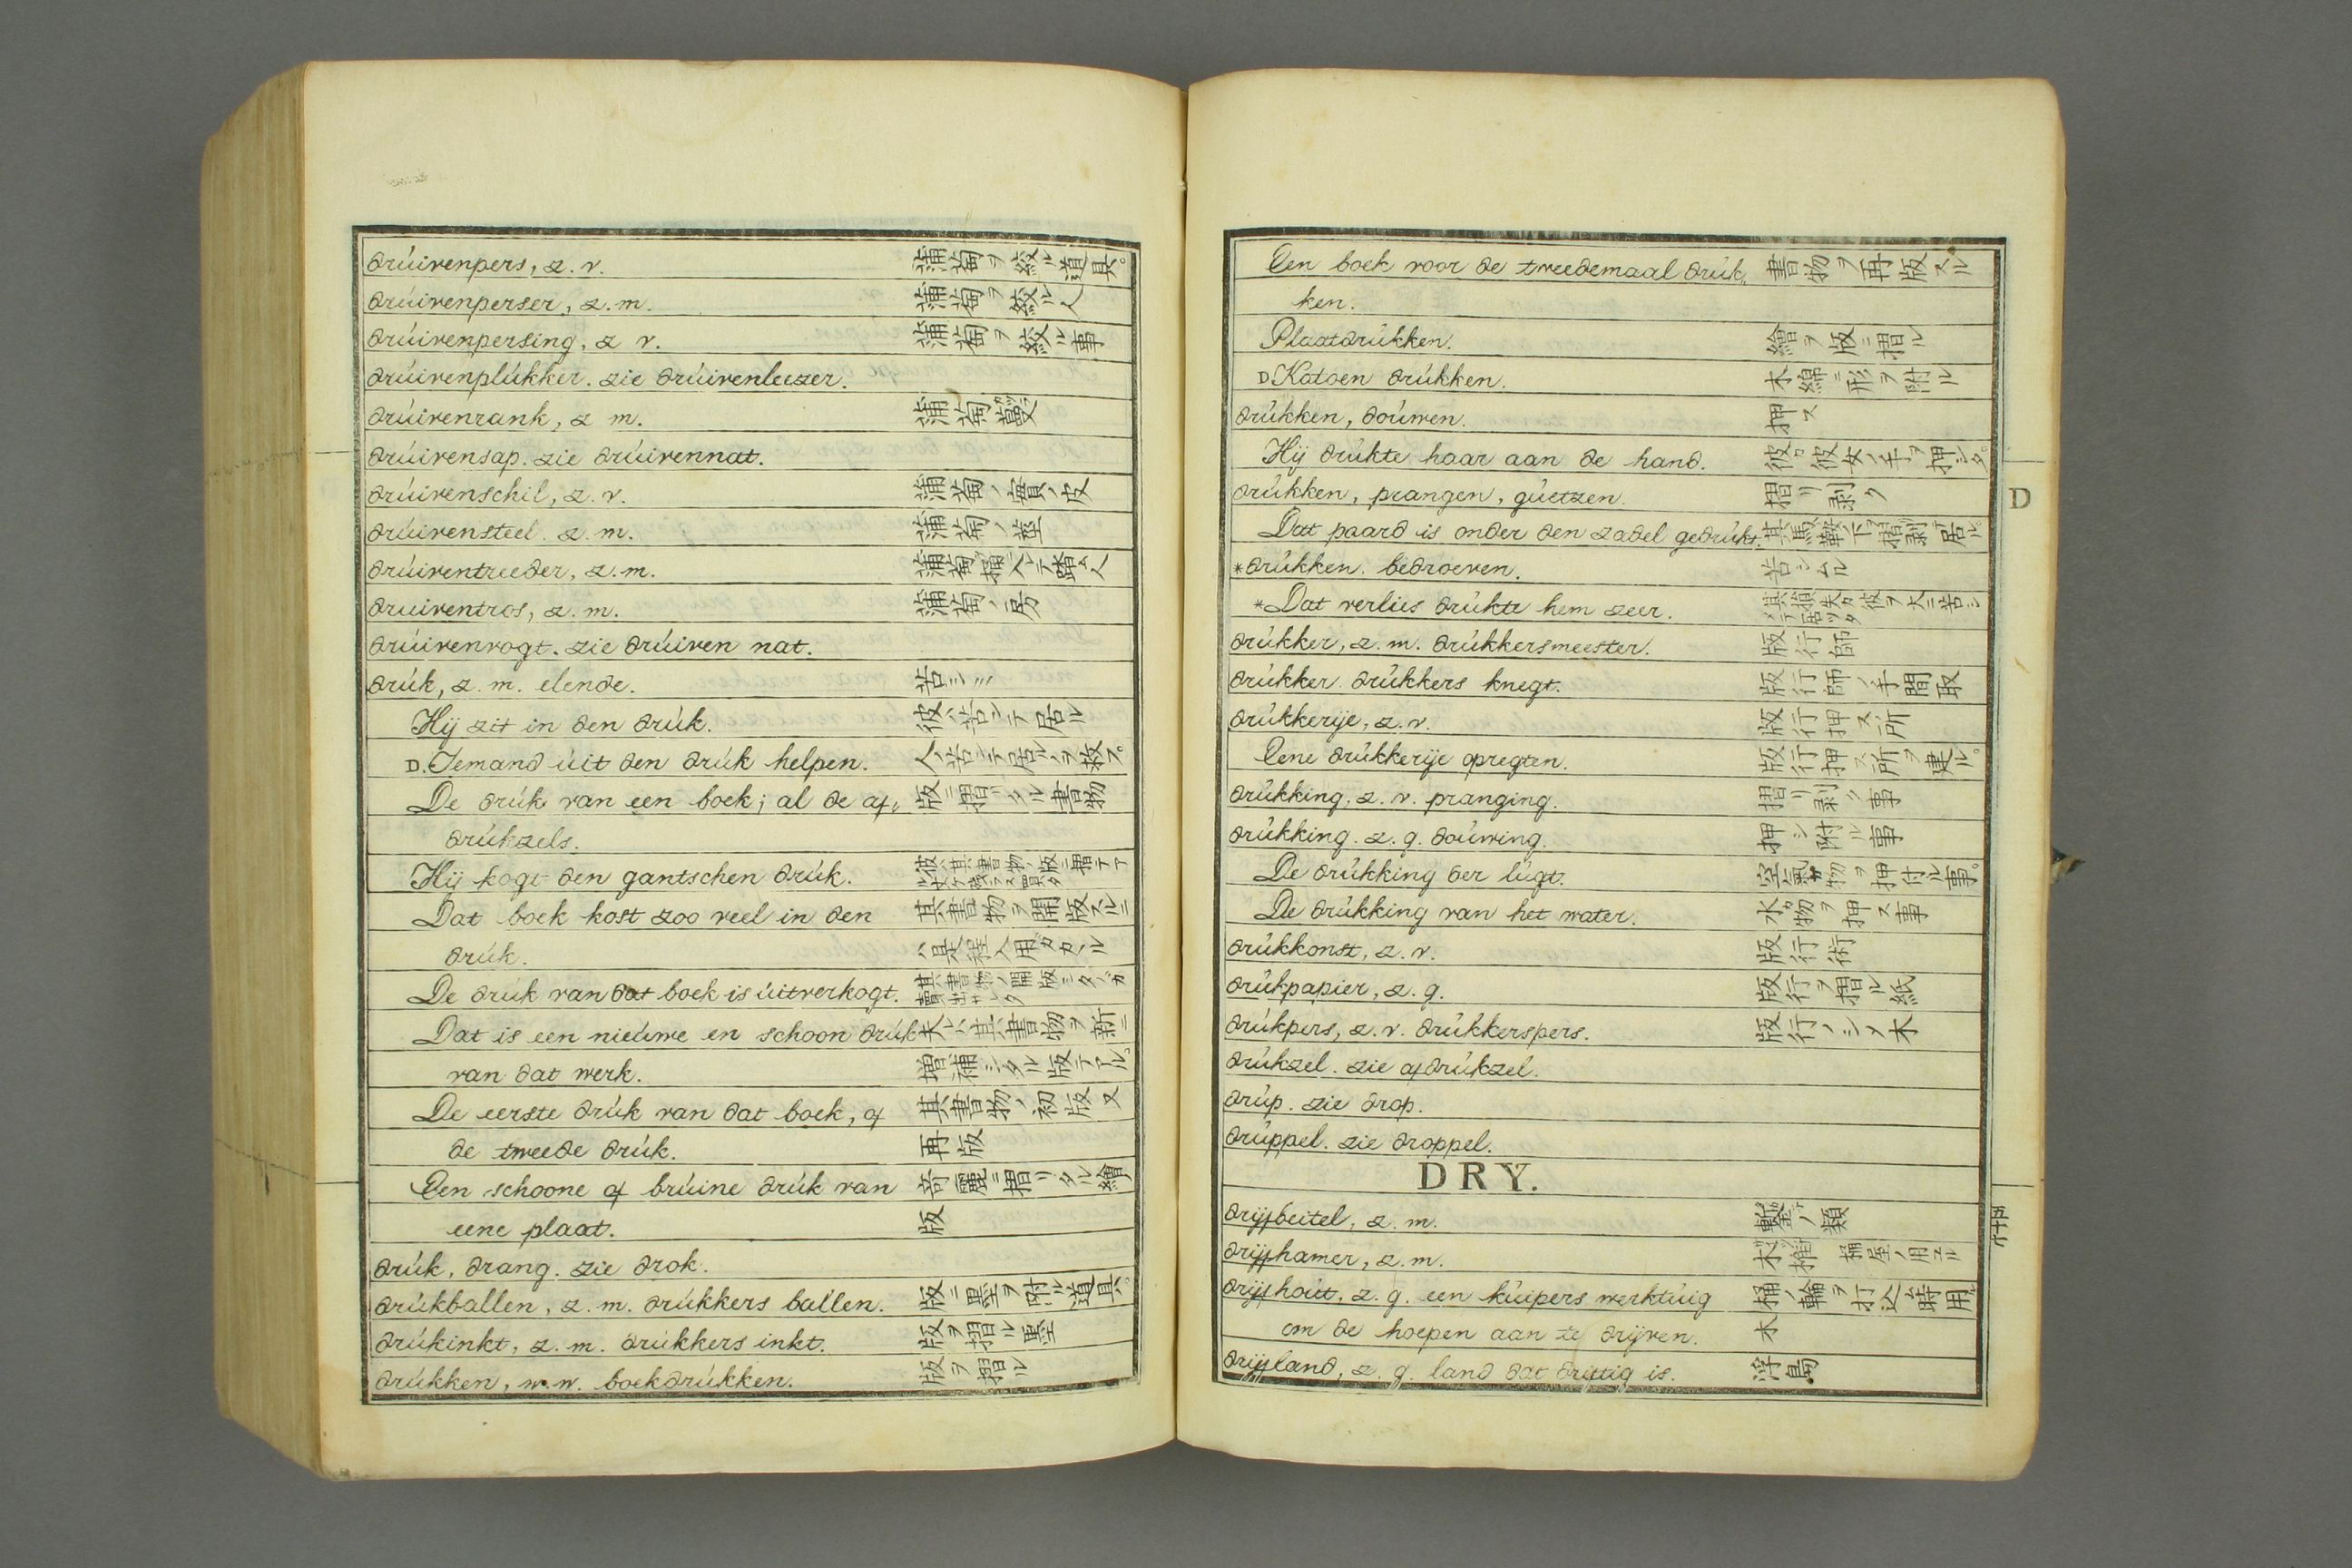 drúivenpers, z. v. 蒲萄ヲ絞ル道具。
drúivenperser, z. m. 蒲萄ヲ絞ル人
drúivenpersing, z v. 蒲萄ヲ絞ル事
drúivenplúkker. zie drúivenleezer.
drúivenrank, z m. 蒲萄蔓
drúivensap. zie drúivennat.
drúivenschil, z. v. 蒲萄ノ實ノ皮
drúivensteel. z. m. 蒲萄ノ莖
drúiventreeder, z. m. 蒲萄桶ヘ入レテ踏ム人
druiventros, z. m. 蒲萄ノ房
drúivenvogt. zie drúiven nat.
drúk, z. m. elende. 苦シミ
Hij zit in den drúk. 彼ハ苦シテ居ル
D. Iemand úit den drúk helpen. 人ノ苦シテ居ルヲ救フ。
De drúk van een boek; al de af„ 版ニ摺リタル書物
drúkzels.
Hij kogt den gantschen drúk.
Dat boek kost zoo veel in den 其書物ヲ開版スルニ
drúk. 是程入用ガカカル
De drúk van dat boek is úitverkogt.
Dat is een nieúwe en schoon drúk 夫レハ其書物ヲ新ニ
van dat werk. 增補シタル版テアル。
De eerste drúk van dat boek, of 其書物ノ初版又
de tweede drúk. 再版
Een schoone of brúine drúk van 奇麗ニ摺リタル繪
eene plaat. 版
drúk, drang. zie drok.
drúkballen, z. m. drúkkers ballen. 版ニ墨ヲ附ル道具。
drúkinkt, z. m. drúkkers inkt. 版ヲ摺ル墨
drúkken, w. w. boekdrúkken. 版ヲ摺ル
Een boek voor de tweedemaal drúk„ 書物ヲ再版スル
ken.
Plaatdrúkken. 繪ヲ版ニ摺ル
D Katoen drúkken. 木綿ニ形ヲ附ル
drúkken, doúwen. 押ス
Hij drúkte haar aan de hand. 彼ガ彼女ノ手ヲ押シタ。
drúkken, prangen, qúetzen. 摺リ剥ク
Dat paard is onder den zadel gedrúkt. 其馬鞍下ヲ摺剥テ居ル。
*drúkken. bedroeven. 苦シムル
*Dat verlies drúkte hem zeer. 其損失ガ彼ヲ大ニ苦シ
drúkker, z. m. drúkkersmeester. 版行師
drúkker. drúkkers knegt. 版行師ノ手間取
drúkkerije, z. v. 版行押ス所
Eene drúkkerije opregten. 版行押ス所ヲ建ル。
drúkking. z. v. pranging. 摺リ剥ク事
drúkking. z. g. doúwing. 押シ附ル事
De drúkking der lúgt. 空氣ガ物ヲ押付ル事。
De drúkking van het water. 水ガ物ヲ押ス事
drúkkonst, z. v. 版行術
drúkpapier, z. g. 版行ヲ摺ル紙
drúkpers, z. v. drúkkerspers. 版行ノシメ木
drúkzel. zie afdrúkzel.
drúp. zie drop.
drúppel. zie droppel.
DRY.
drijfbeitel, z. m. 鏨ノ類
drijfhamer, z. m. 木椎 桶屋ノ用ユル
drijfhoút, z. g. een kúipers werktúig 桶ノ輪ヲ打込時用ル
om de hoepen aan te drijven. 木
drijfland, z. g. land dat driftig is. 浮島
D